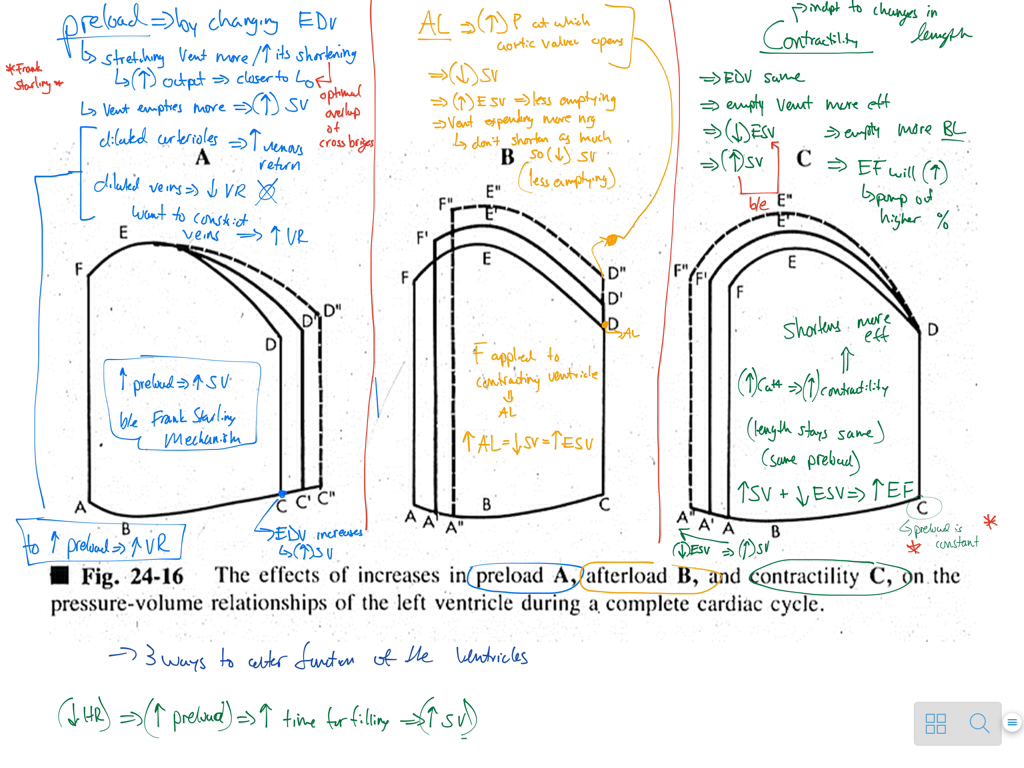 preload => by changing EDV
↳ stretching Vent more/↑ its shortening
↳ (↑) output => closer to L₀
*Frank Starling*
optimal
overlap
of
cross briges
↳ Vent empties more => (↑) SV
dilated arterioles => ↑ venous
return
dilated veins => ↓ VR
want to constrict
veins => ↑ VR
A
E
F
D
D'
D"
↑ preload => ↑ SV
b/c Frank Starling
Mechanism
A
B
C
C'
C"
to ↑ preload => ↑ VR
EDV increases
↳ (↑) SV
AL => (↑) P at which
aortic valves opens
=> (↓) SV
=> (↑) ESV => less emptying
=> Vent expending more nrg
↳ don't shorten as much
so (↓) SV
(less emptying)
B
E"
F"
E'
F'
E
F
D"
D'
D
AL
F applied to
contracting ventricle
⇓
AL
↑ AL = ↓ SV = ↑ ESV
A
A'
A"
B
C
indpt to changes in
length
Contractility
=> EDV same
=> empty Vent more eff
=> (↓) ESV => empty more BL
=> (↑) SV
b/c
C
=> EF will (↑)
↳ pump out
higher %
E"
E'
F"
F'
E
F
D
Shortens more
eff
⇑
(↑) Ca++ => (↑) contractility
(length stays same)
(same preload)
↑ SV + ↓ ESV => ↑ EF
A"
A'
A
B
C
↳ preload is
constant
*
*
(↓) ESV => (↑) SV
■ Fig. 24-16 The effects of increases in preload A, afterload B, and contractility C, on the
pressure-volume relationships of the left ventricle during a complete cardiac cycle.
→ 3 ways to alter function of the Ventricles
(↓ HR) => (↑ preload) => ↑ time for filling => (↑ SV)